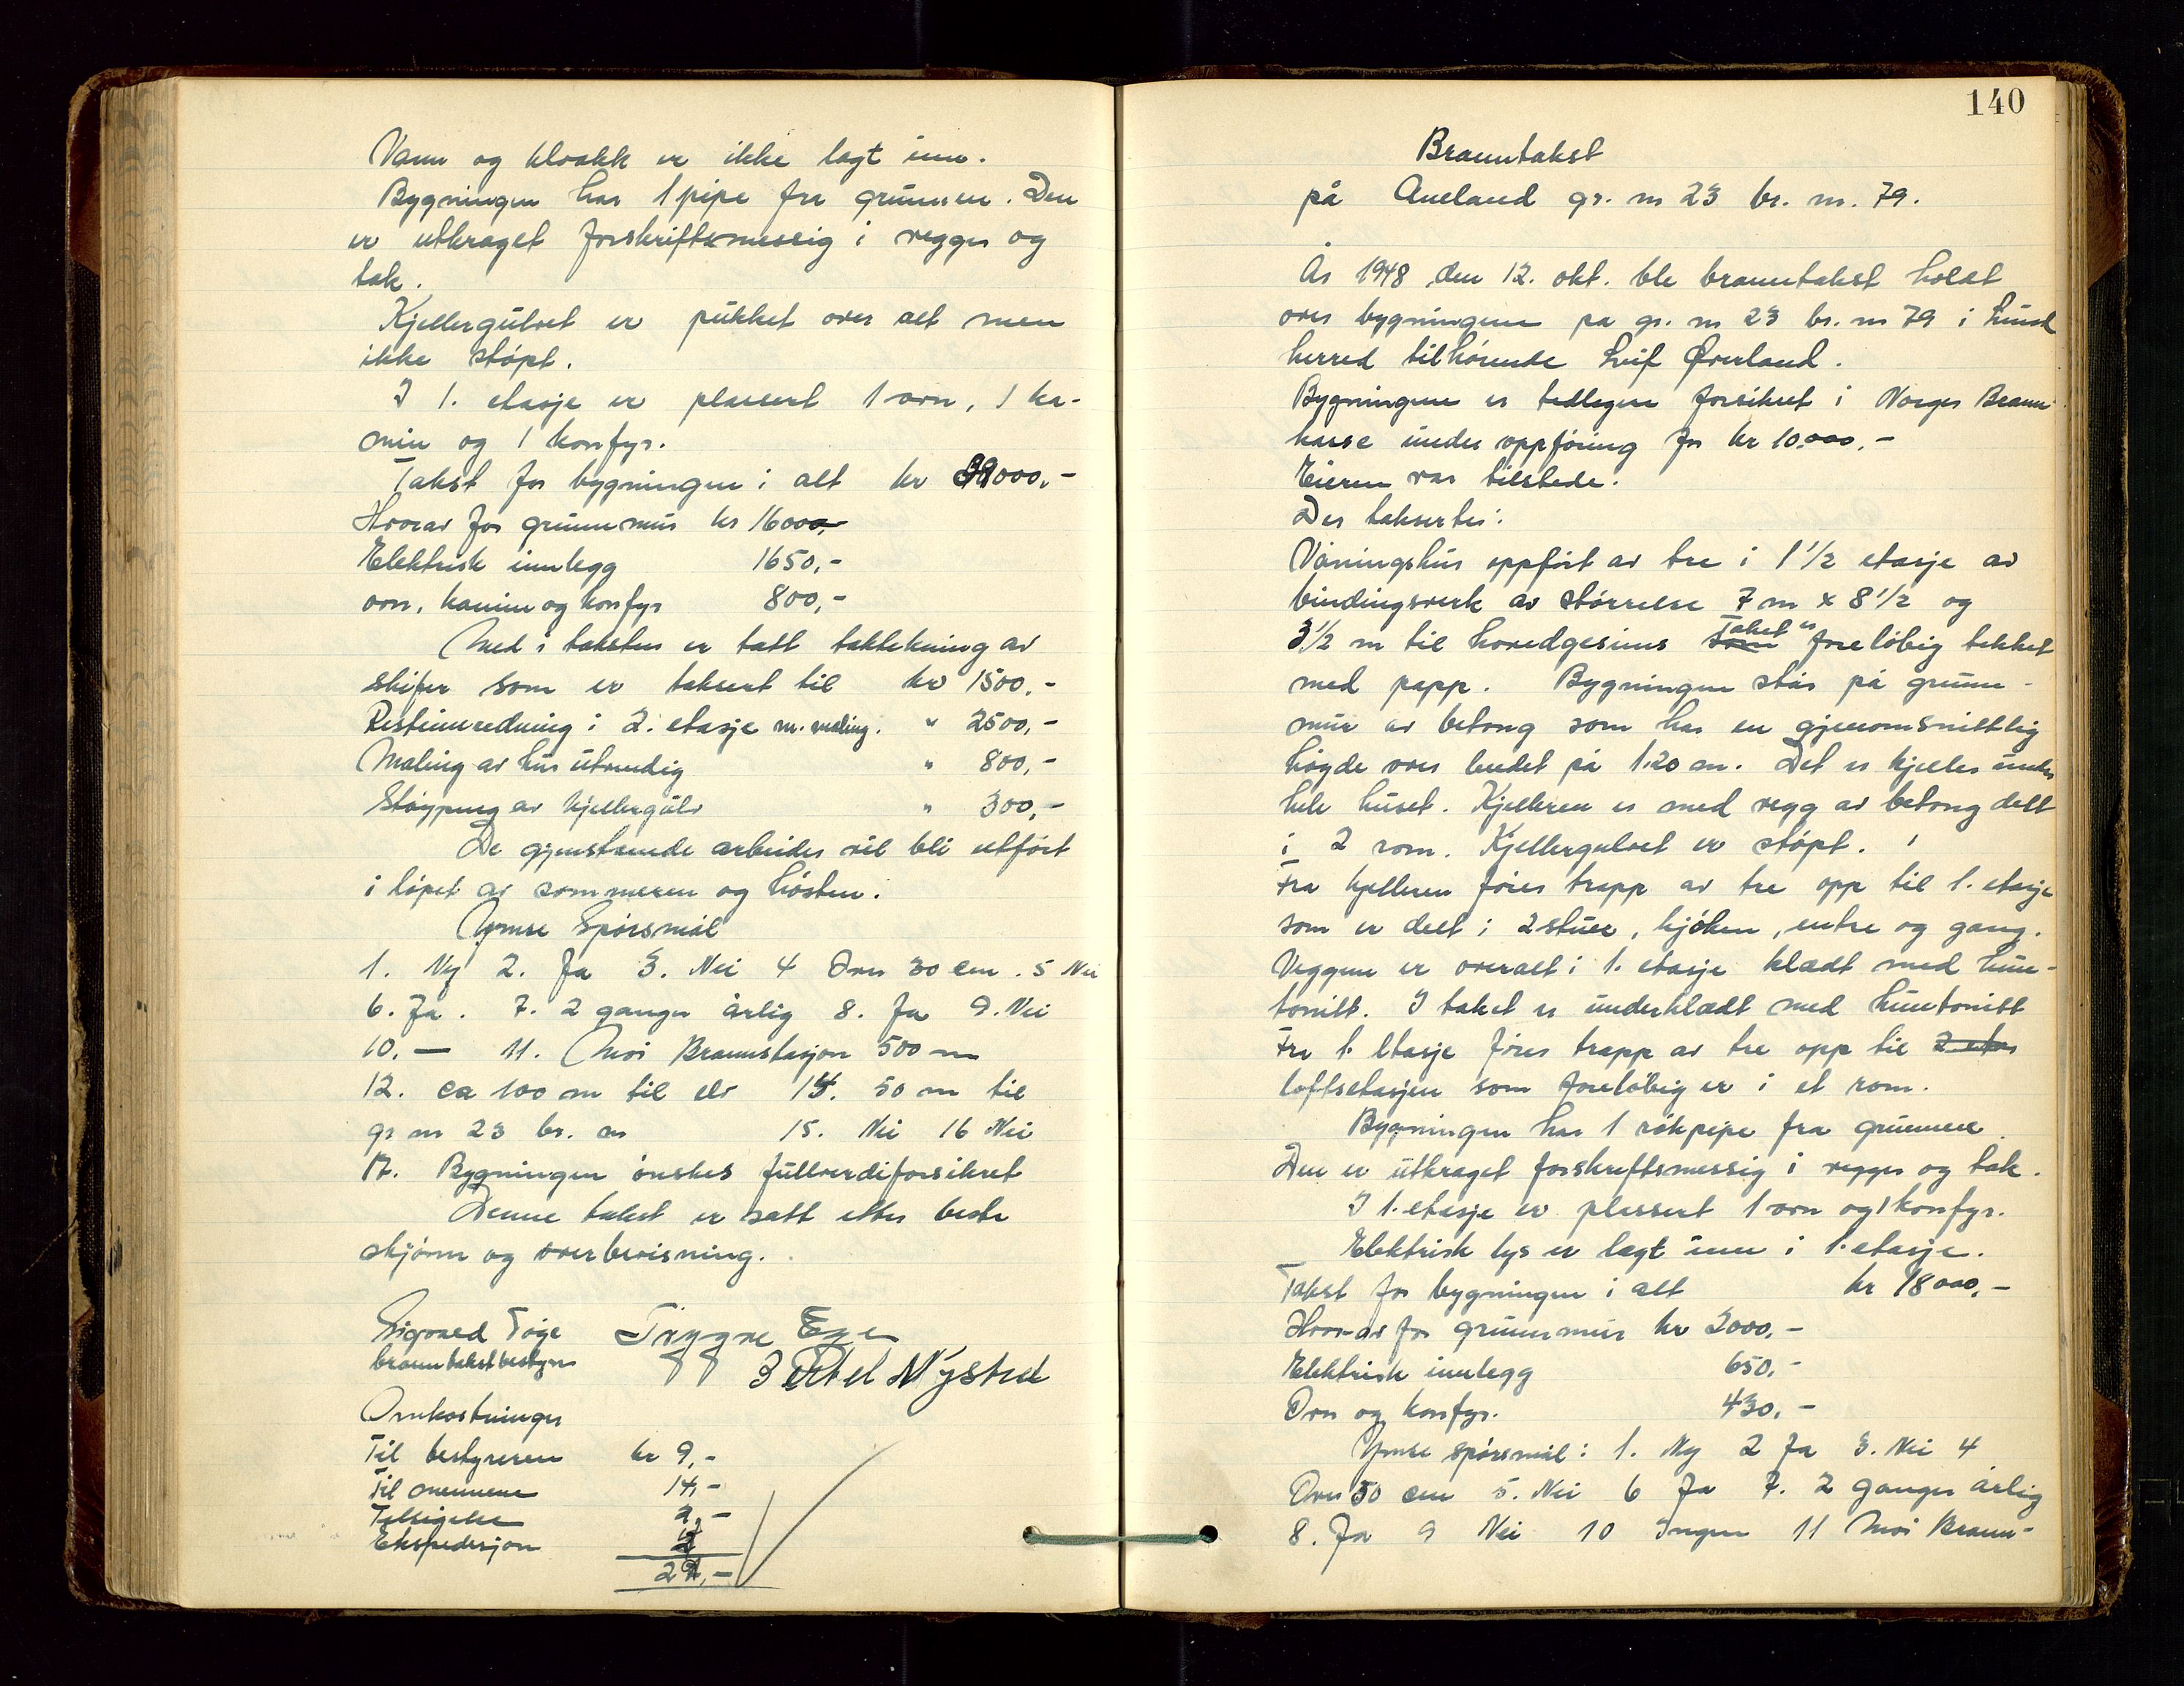 Vann og kloakk er ikke lagt inn.
Bygningen har 1 pipe fra grunnen. Den
er utkraget forskriftsmessig i vegger og
tak.
Kjellergulvet er pukket over alt men
ikke støpt.
I 1. etasje er plassert 1 ovn, 1 ka-
min og 1 komfyr.
Takst for bygningen i alt kr 000,-
Hvorav for grunnmur kr 16000,-
Elektrisk innlegg 1650,-
ovn, kamin og komfyr 800,-
Med i taksten er tatt taktekning av
skifer som er taksert til kr 1500,-
Restinnredning i 2. etasje m. maling. " 2500,-
Maling av hus utvendig " 800,-
Støyping av kjellergulv " 300,-
De gjenstående arbeider vil bli utført
i løpet av sommeren og høsten.
Ymse Spørsmål
1. Ny 2. Ja 3. Nei 4 Over 30 cm. 5 Nei
6. Ja. 7. 2 ganger årlig 8. Ja 9. Nei
10. — 11. Moi Brannstasjon 500 m
12. ca 100 m til elv 14. 50 m til
gr nr 23 br. nr 15. Nei 16 Nei
17. Bygningen ønskes fullverdiforsikret
Denne takst er satt etter beste
skjønn og overbevisning.
Sigvald Tøge Trygve Ege
branntakstbestyrer Bertel Nysted
Omkostninger
Til bestyreren kr 9,-
Til mennene 14,-
Tilsigelse 2,-
Ekspedisjon 2
140
Branntakst
på Aueland gr. nr 23 br. nr. 79.
År 1948 den 12. okt. ble branntakst holdt
over bygningene på gr. nr 23 br. nr 79 i Lund
herred tilhørende Leif Øverland.
Bygningene er tidligere forsikret i Norges Brann-
kasse under oppføring for kr 10.000,-
Eieren var tilstede.
Der takserter:
Våningshus oppført av tre i 1 1/2 etasje av
bindingsverk av størrelse 7 m x 8 1/2 og
3 1/2 m til hovedgesims som Taket er foreløbig tekket
med papp. Bygningen står på grunn-
mur av betong som har en gjennomsnittlig
høgde over lendet på 1.20 m. Det er kjeller under
hele huset. Kjelleren er med vegg av betong delt
i 2 rom. Kjellergulvet er støpt.
Fra kjelleren fører trapp av tre opp til 1. etasje
som er delt i 2 stuer, kjøken, entre og gang.
Veggene er overalt i 1. etasje kledt med hun-
tonitt. I taket er underkledt med huntonitt
Fra 1. Etasje fører trapp av tre opp til 2 etas
loftsetasjen som foreløbig er i et rom.
Bygningen har 1 røkpipe fra grunnen.
Den er utkraget forskriftsmessig i vegger og tak.
I 1. etasje er plassert 1 ovn og 1 komfyr.
Elektrisk lys er lagt inn i 1. etasje.
Takst for bygningen i alt kr 18000,-
Hvorav for grunnmur kr 2000,-
Elektrisk innlegg 650,-
Ovn og komfyr. 430,-
Ymse spørsmål: 1. Ny 2 Ja 3. Nei 4
Over 50 cm 5. Nei 6 Ja 7. 2 ganger årlig
8. Ja 9 Nei 10 Ingen 11 Moi Brann-